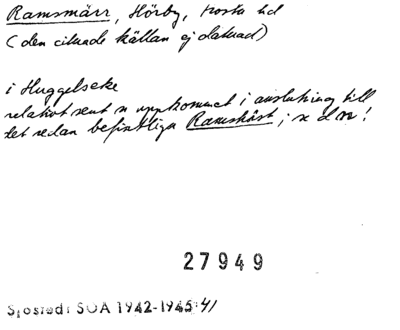 Ramsmärr, Hörby, Frosta hd
(den citerade källan ej daterad)
i Huggelseke
relativt sent n uppkommet i anslutning till
det redan befintliga Ramshäst; x d n!
27949
Sjöstedt SOA 1942-1945:41